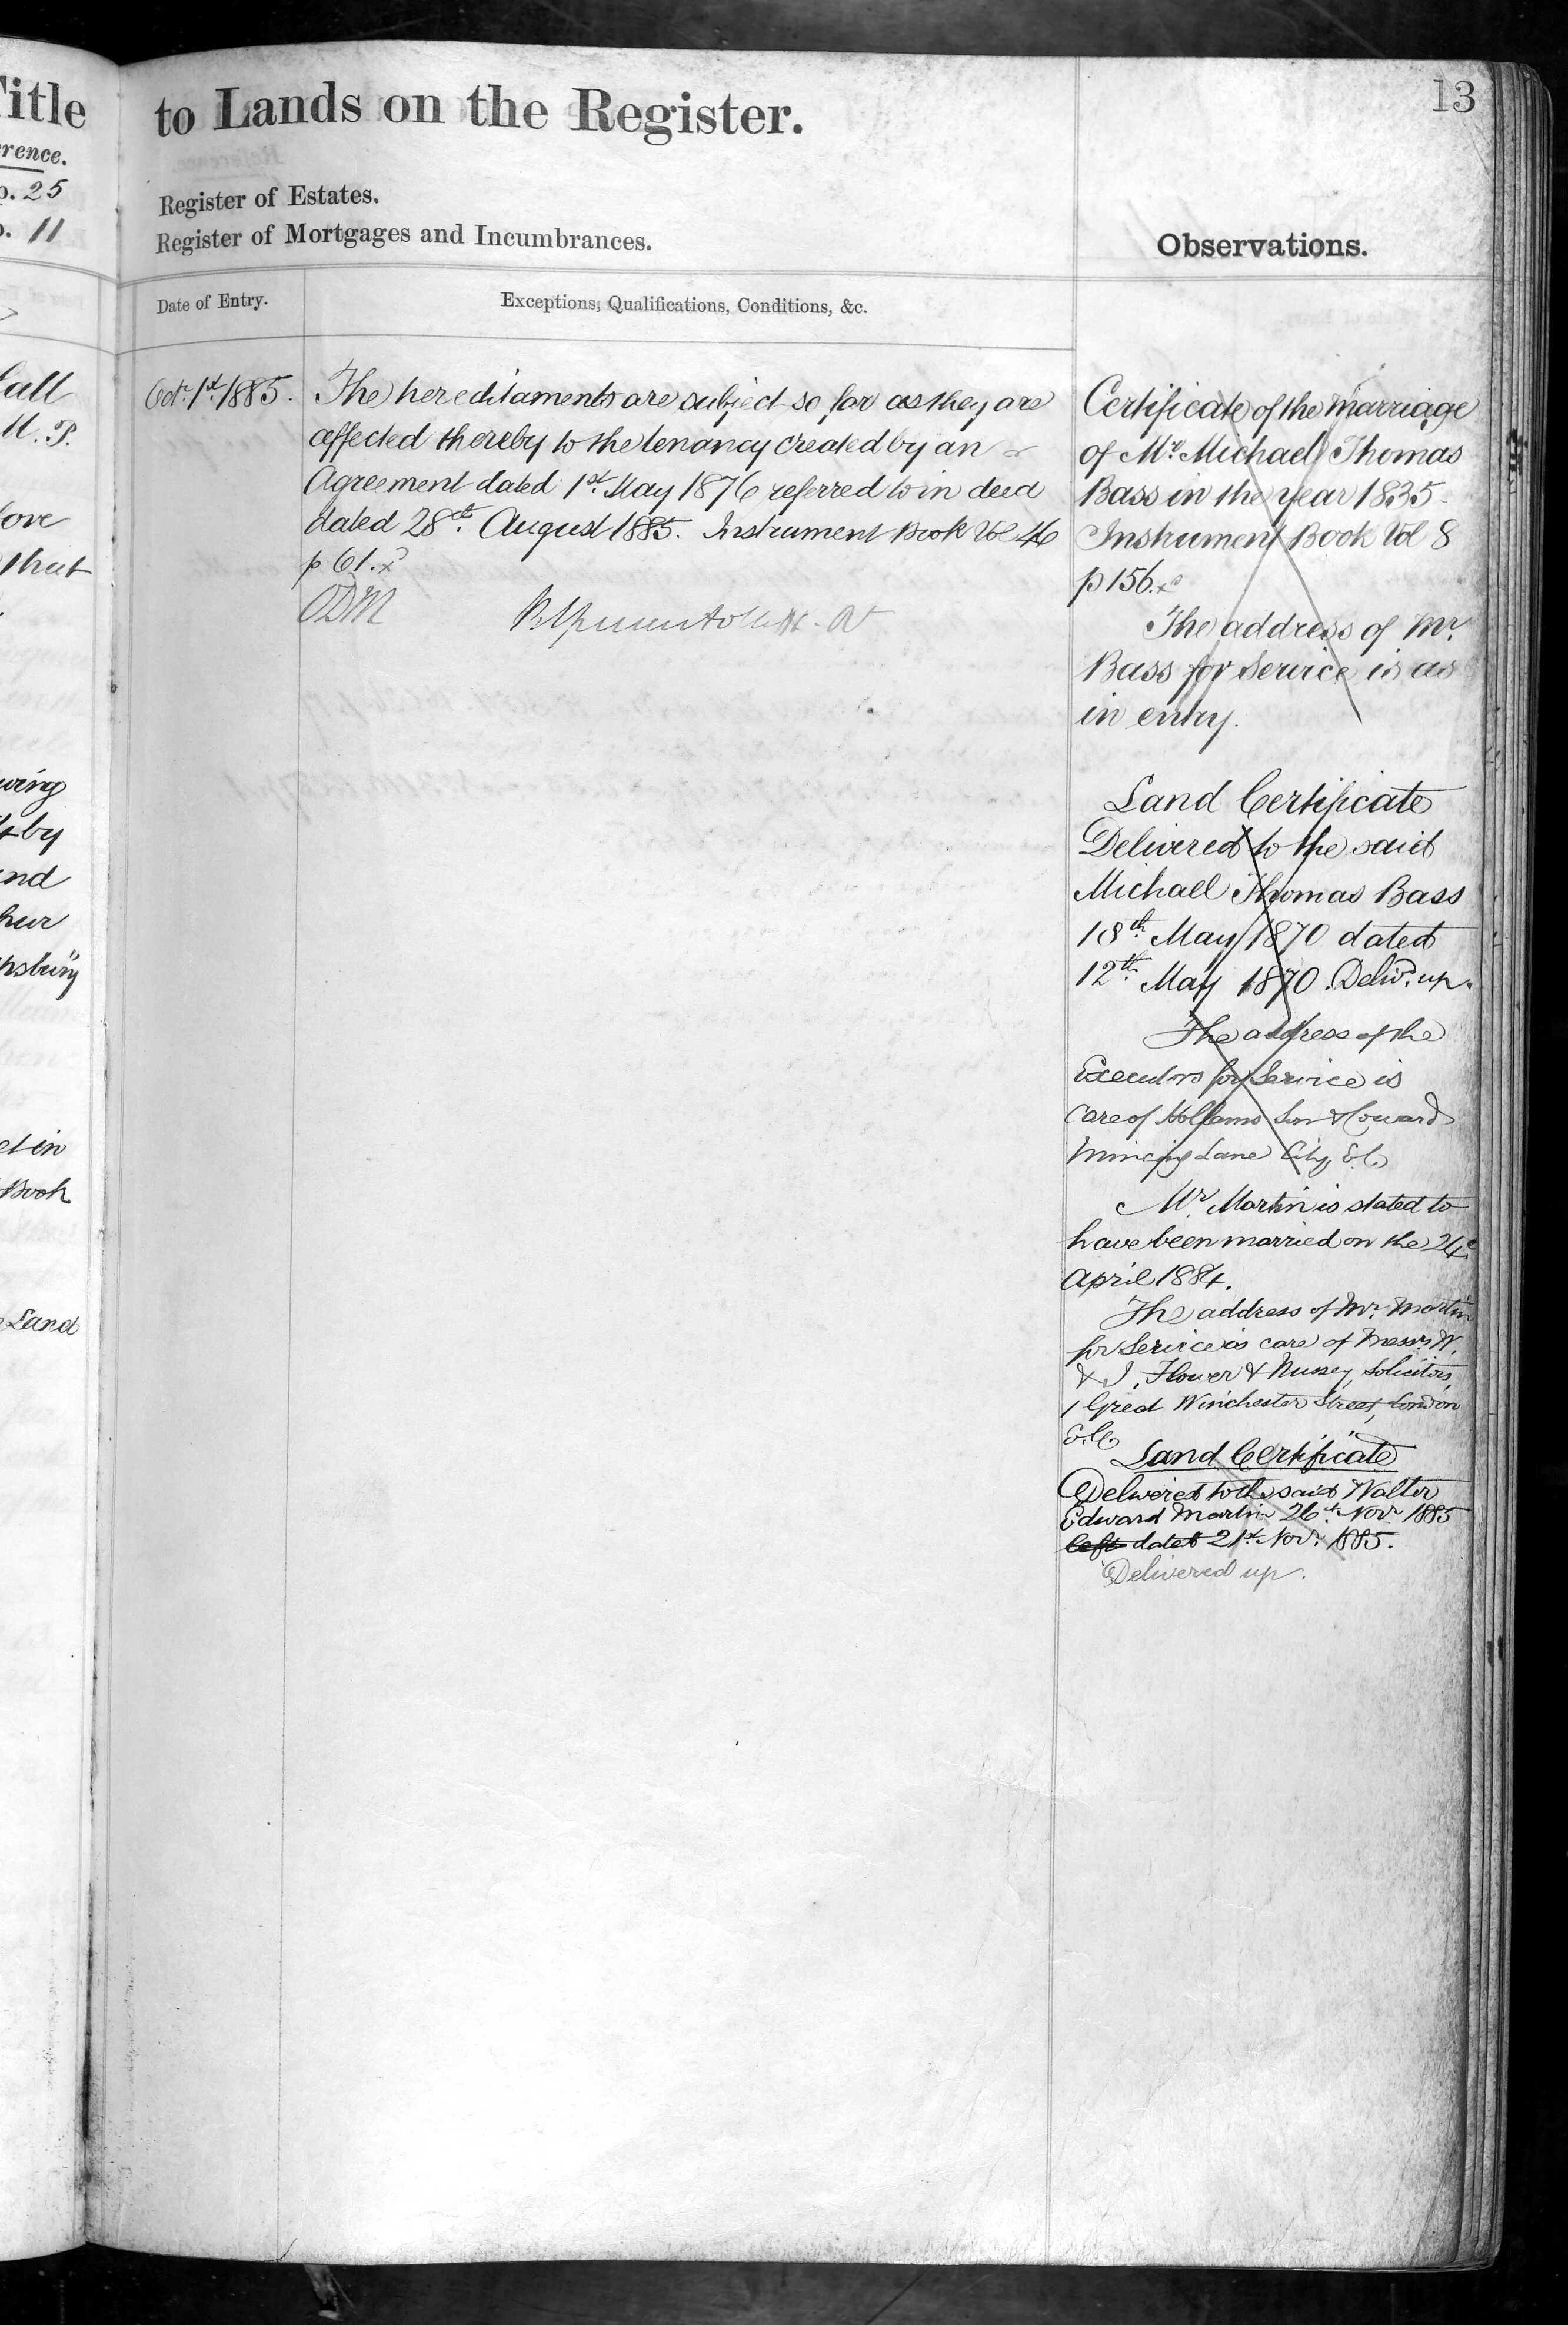 13
Title
rence.
p. 25
p. 11
M. P.
ove
that
wing
t by
nd
hur
et in
Book
Land
to Lands on the Register.
Register of Estates.
Register of Mortgages and Incumbrances.
Date of Entry.
Exceptions, Qualifications, Conditions, &c.
Octr. 1st. 1885.
The hereditaments are subject so far as they are
affected thereby to the tenancy created by an
Agreement dated 1st. May 1876 referred to in deed
dated 28th. August 1885. Instrument Book Vol 46
p 61.
Observations.
Certificate of the Marriage
of Mr. Michael Thomas
Bass in the year 1835
Instrument Book Vol 8
p 156.
The address of Mr.
Bass for Service is as
in entry.
Land Certificate
Delivered to the said
Michael Thomas Bass
18th. May 1870 dated
12th. May 1870. Delivd. up.
The address of the
Executors for Service is
Care of Hollams Son & Coward
Mincing Lane City, E.C.
Mr. Martin is stated to
have been married on the 24
April 1884.
The address of Mr. Martin
for Service is care of Messrs W.
& J. Flower & Nussey, Solicitors,
1 Great Winchester Street, London
E.C.
Land Certificate
Delivered to the said Walter
Edward Martin 26th. Novr 1885
dated 21st. Novr. 1885.
Delivered up.